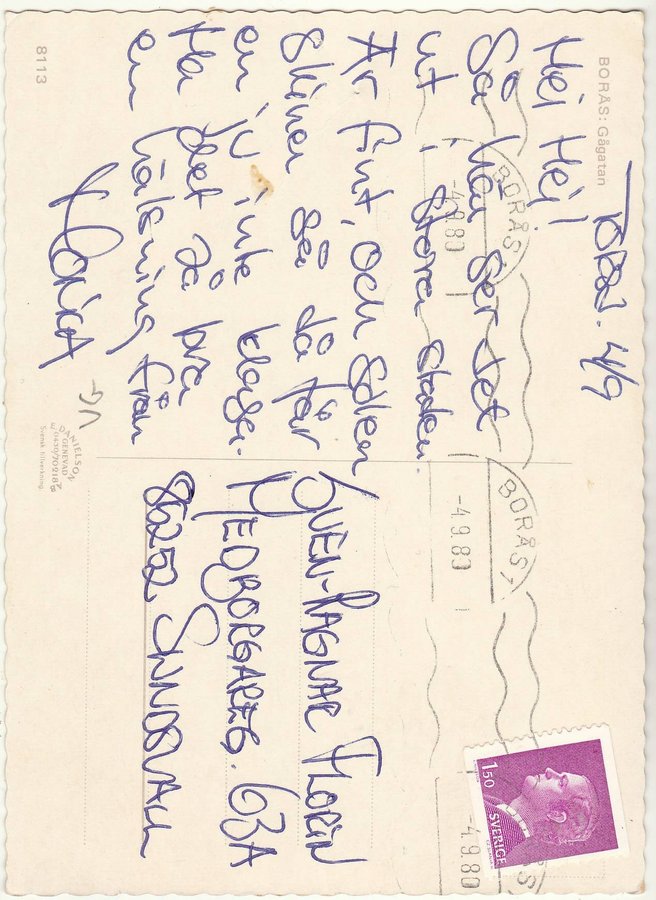 BORÅS: Gågatan
Torsd. 4/9
Hej Hej!
Så här ser det
ut i stora staden.
Är fint, och solen
skiner så då får
en ju inte klaga.
Ha det så bra
en hälsning från
8113
DANIELSON
GENEVAD
0430/70218
Svensk tillverkning
BORÅS 1
-4.9.80
BORÅS 1
-4.9.80
-4.9.80
1.50
SVERIGE
SVEN-RAGNAR FLORIN
MEDBORGAREG. 63A
86252 SUNDSVALL